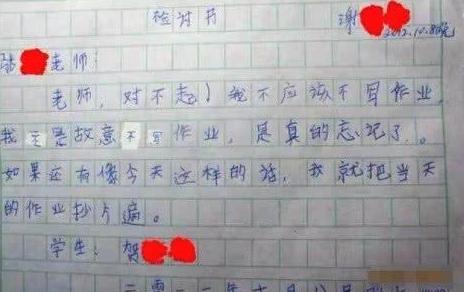 检讨书 谢
老师:
老师,对不起!我不应该不写作业,
我不是故意不写作业,是真的忘记了。
如果还有像今天这样的话,我就把当天
的作业抄 遍。
学生:贺
二零一一年十月八日